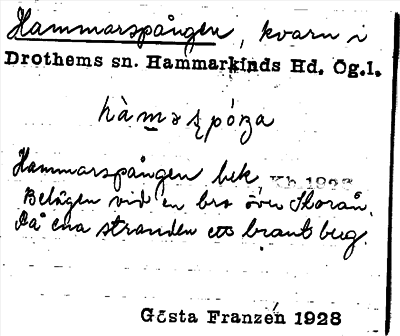 Hammarspången, kvarn i
Drothems sn. Hammarkinds Hd. Ög.l.
Hammarspången bek. Kh.
Belägen vid en bro över Storån.
På ena stranden ett brant berg.
Gösta Franzén 1928